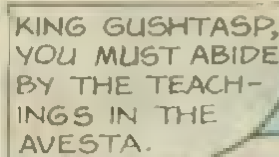 KING GUSHTASP,
YOU MUST ABIDE
BY THE TEACH-
INGS IN THE
AVESTA.